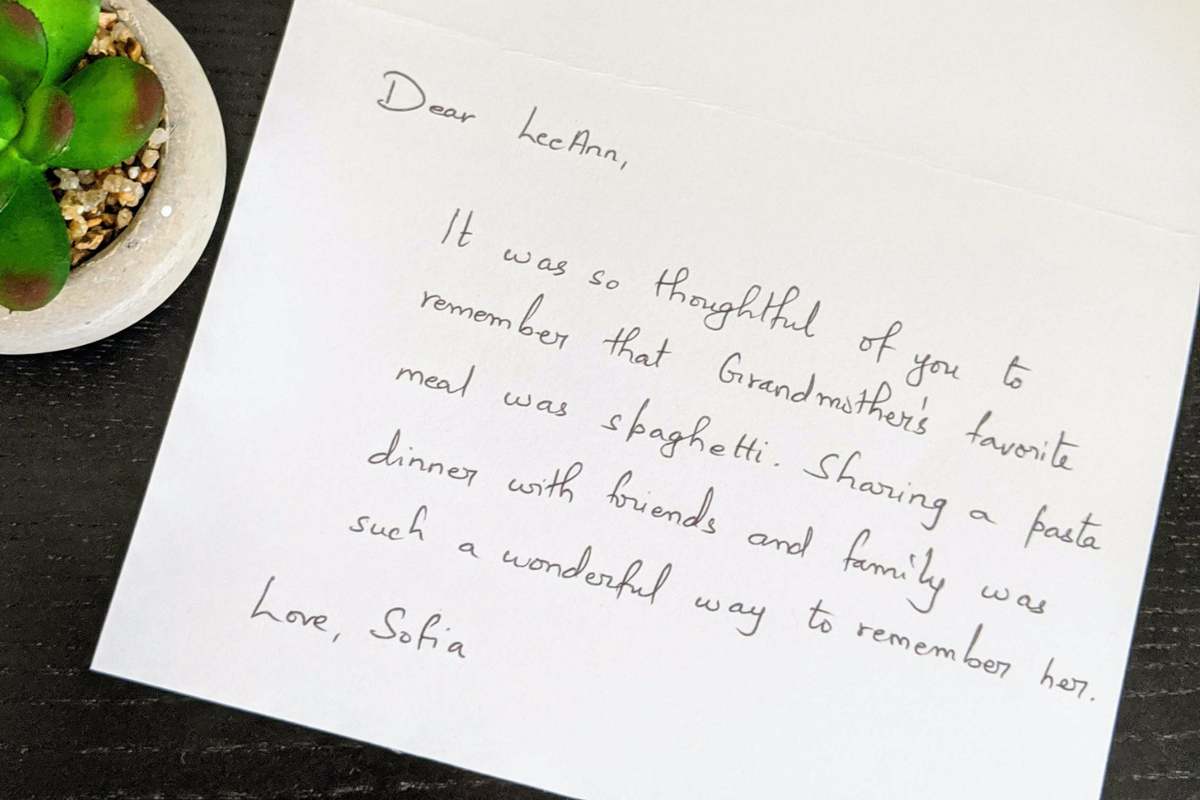 Dear LeeAnn,
It was so thoughtful of you to
remember that Grandmother's favorite
meal was spaghetti. Sharing a pasta
dinner with friends and family was
such a wonderful way to remember her.
Love, Sofia